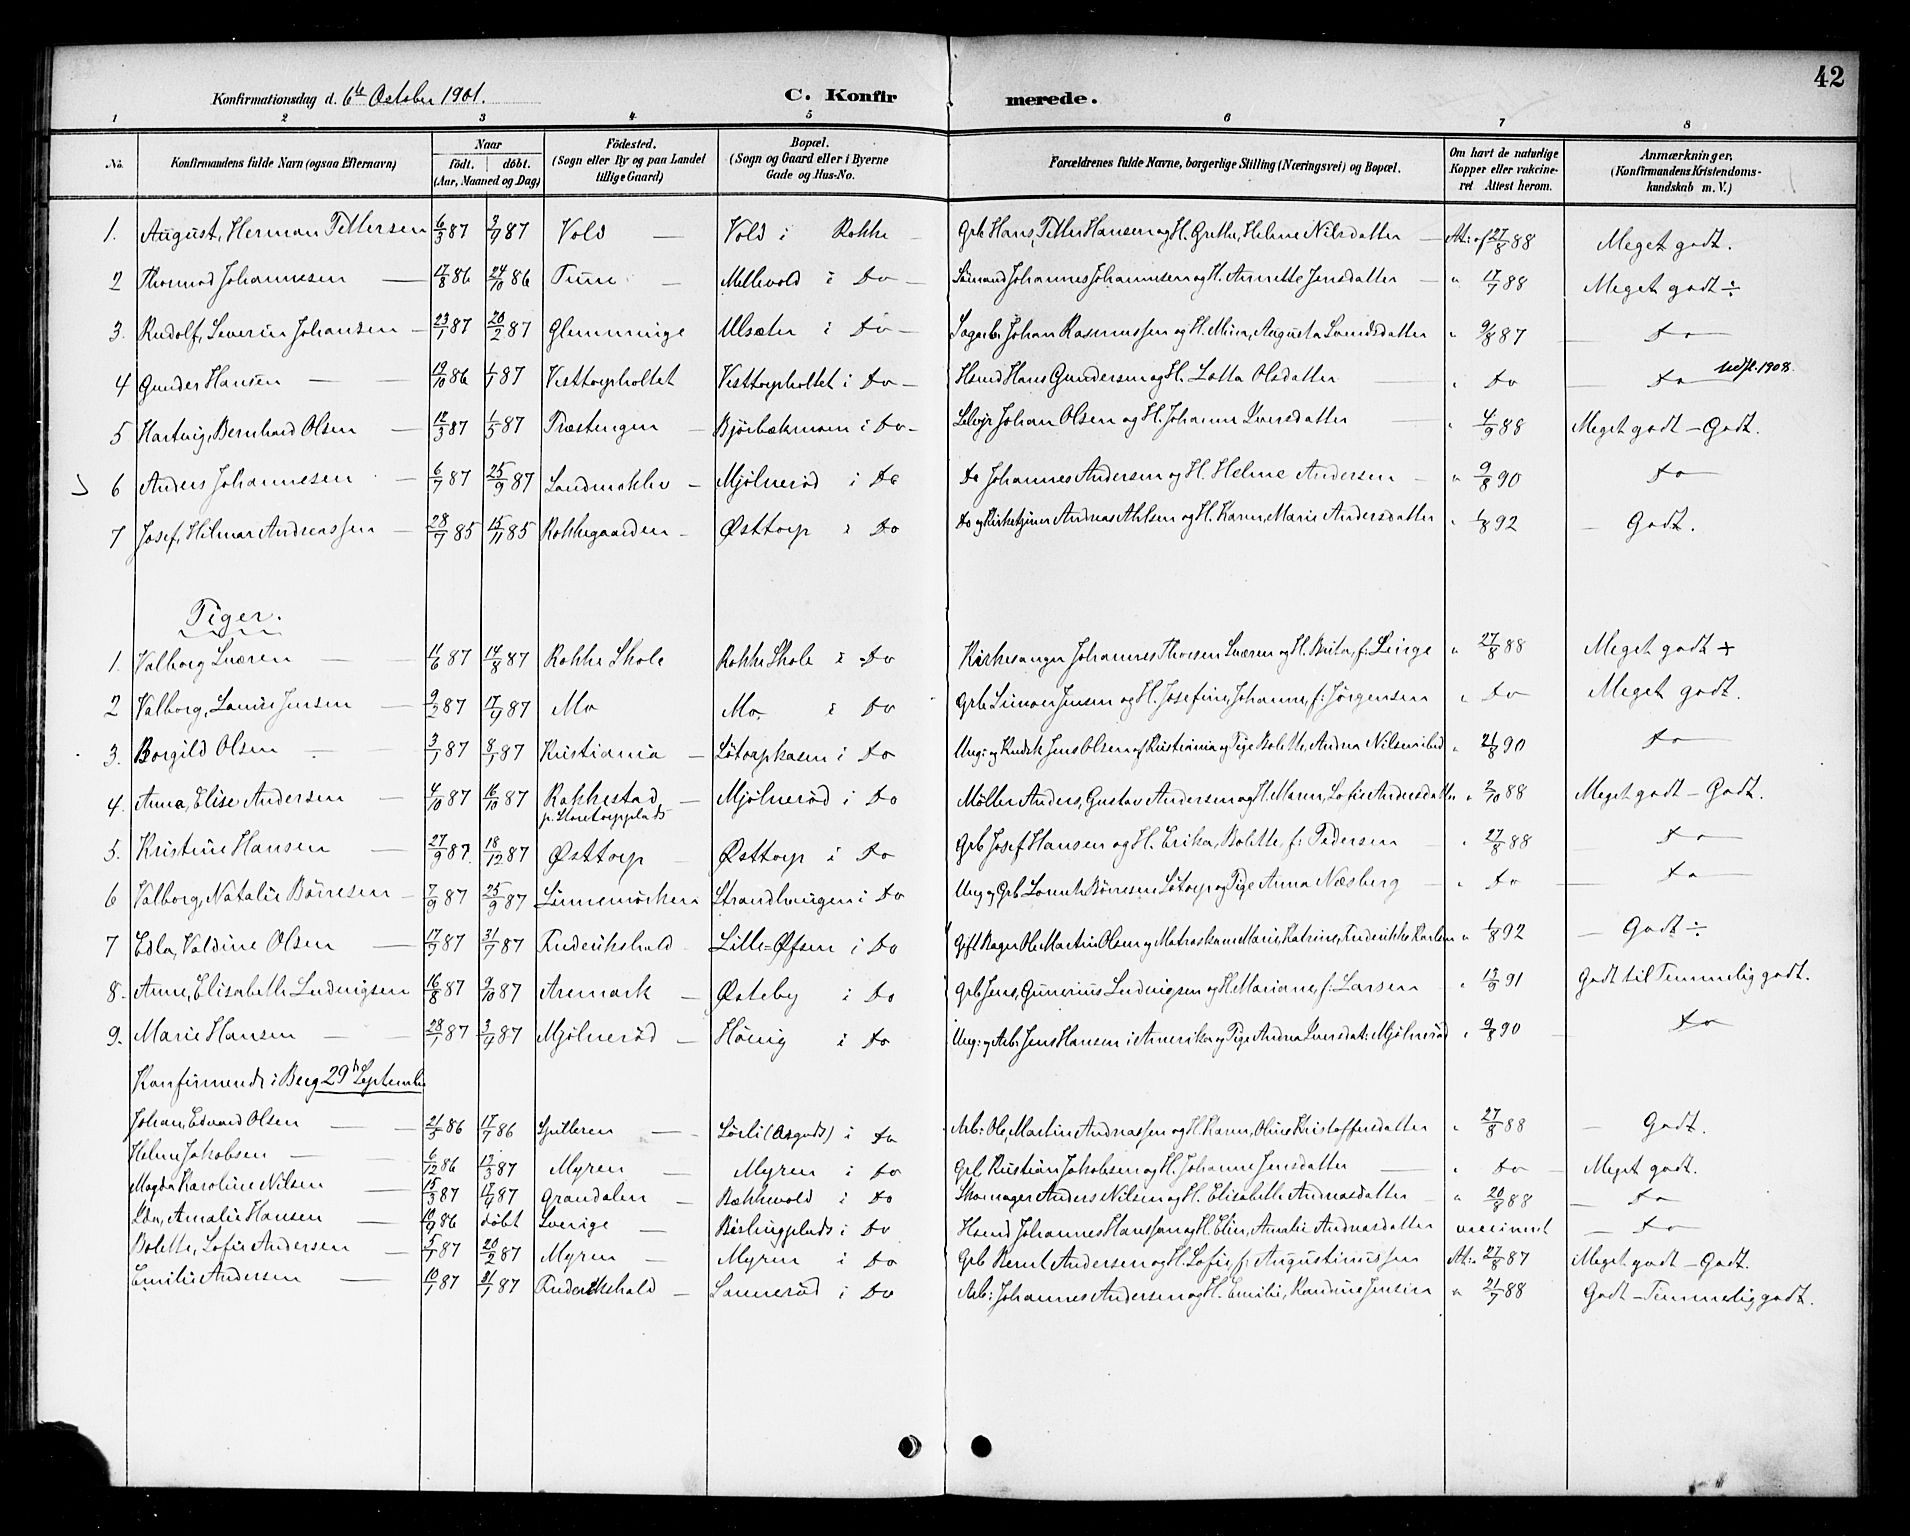 42
Konfirmationsdag d. 6te October 1901. C. Konfirmerede.
1 2 3 4 5 6 7 8
No. Konfirmandens fulde Navn (ogsaa Efternavn) Naar født. døbt. (Aar, Maaned og Dag) Fødested. (Sogn eller By og paa Landet tillige Gaard) Bopæl. (Sogn og Gaard eller i Byerne Gade og Hus-No. Forældrenes fulde Navne, borgerlige Stilling (Næringsvei) og Bopæl. Om havt de naturlige Kopper eller vakcineret Attest herom. Anmærkninger. (Konfirmandens Kristendomskundskab m. V.)
1. August, Herman Pettersen 6/3 87 3/9 87 Vold — Vold i Rokke — Grb Hans, Petter Hansen og H. Grethe, Helene Nilsdatter — At: af 27/8 88 Meget godt.
2 Thormod Johannesen — 17/8 86 24/10 86 Tune — Mellevold i Do — Sømand Johannes Johannesen og H. Annette Jensdatter — " 17/7 88 Meget godt ÷
3. Rudolf, Severin Johansen — 23/1 87 20/2 87 Glemminge Ulsæter i Do — Sagarb. Johan Rasmussen og H. Mina, Augusta " 9/8 87 — Do
4 Gunder Hansen — 19/10 86 1/1 87 Visttorpholtet Visttorpholtet i Do — Hsmd Hans Gundersen og H. Lotta Olsdatter — " Do — Do 1908.
5 Hartvig, Bernhard Olsen — 12/3 87 1/5 87 Træstengen — i Do — Selvejr Johan Olsen og H. Johanne Iversdatter — " 4/9 88 Meget godt — Godt.
6 Anders Johannesen — 6/7 87 25/9 87 — Mjølnerød i Do Do Johannes Andersen og H. Helene Andersen — " 9/8 90 Do
7 Josef, Hilmar Andreassen — 28/7 85 15/11 85 Rokkegaarden — Østtorp i Do Do og Kirketjener Andreas Ahlsen og H. Karen, Marie Andersdatter " 1/8 92 — Godt.
Piger.
1. Valborg Sværen — 11/6 87 14/8 87 Rokke Skole Rokke Skole i Do Kirkesanger Johannes Thorsen Sværen og H. Brita, f: Leirge " 27/8 88 Meget godt +
2 Valborg, Lovise Jensen — 9/2 87 17/4 87 Mo Mo. i Do Grb Simon Jensen og H. Josefine, Johanne, f: Jørgensen " Do Meget godt.
3. Borgild Olsen — 3/1 87 8/1 87 Kristiania — Løtorpkasen i Do Ung: og Jens Olsen af Kristiania og Pige Bolette, Andrea Nilsen " 21/8 90 Do
4. Anna, Elise Andersen — 4/10 87 16/10 87 Rakkestad p. — Mjølnerød i Do Møller Anders, Gustav Andersen og H. Maren, Sofie Andersdatter " 2/10 88 Meget godt — Godt.
5. Kristine Hansen — 27/9 87. 18/12 87 Østtorp — Østtorp i Do Grb Josef Hansen og H. Erika, Bolette, f: Pedersen — " 27/8 88 — Do
6 Valborg, Natalie Børresen — 7/9 87 25/9 87 Strandhougen i Do Ung og Grb Børresen Løtorp og Pige Anna Næsberg — " Do — Do
7 Edla, Valdine Olsen — 17/3 87 31/7 87 Frederikshald Lille-Øfsen i Do Gift Bager Ole Martin Olsen og Marie, Katrine, Frederikke Karlsen " 1/8 92 — Godt ÷
8. Anne, Elisabeth Ludvigsen 16/8 87 9/10 87 Aremark — Østeby i Do Grb Jens, Gunerius Ludvigsen og H. Mariane, f: Larsen — " 13/9 91 Godt til Temmelig godt.
9. Marie Hansen — 28/1 87 3/4 87 Mjølnerød — Hövig i Do Ung: og Arb: Jens Hansen i Amerika og Pige Andrea Iversdat: Mjølnerød " 9/8 90 — Do
Konfirmerede i Berg 29de September
Johan, Edvard Olsen — 21/5 86 17/7 86 — i Do Arb: Ole, Martin Andreassen og H. Karen, Oline Kristoffersdatter " 27/8 88 — Godt.
Helene Jakobsen — 6/12 86 13/3 87 Myren — Myren i Do Grb. Kristian Jakobsen og H. Johanne Jensdatter — " Do — Meget godt.
Magda Karoline Nilsen — 15/3 87 17/4 87 Grandalen — Bækkevold i Do Skomager Anders Nilsen og H. Elisabeth Andreasdatter — " 20/8 88 — Do
Eda, Amalie Hansen — 10/9 86 døbt Sverige — i Do Hsmd Johannes Hanssen og H. Elin, Amalie Andreasdatter vaccineret — Do
Bolette, Sofie Andersen — 5/1 87 20/2 87 Myren — Myren i Do Grb Bernt Andersen og H. Sofie, f: Augustinussen At: 27/8 87 Meget godt — Godt.
Emilie Andersen — 10/1 87 31/7 87 Frederikshald — Sannerød i Do Arb: Johannes Andersen og H. Emilie, Randine Jensen " 21/7 88 Godt — Temmelig godt.